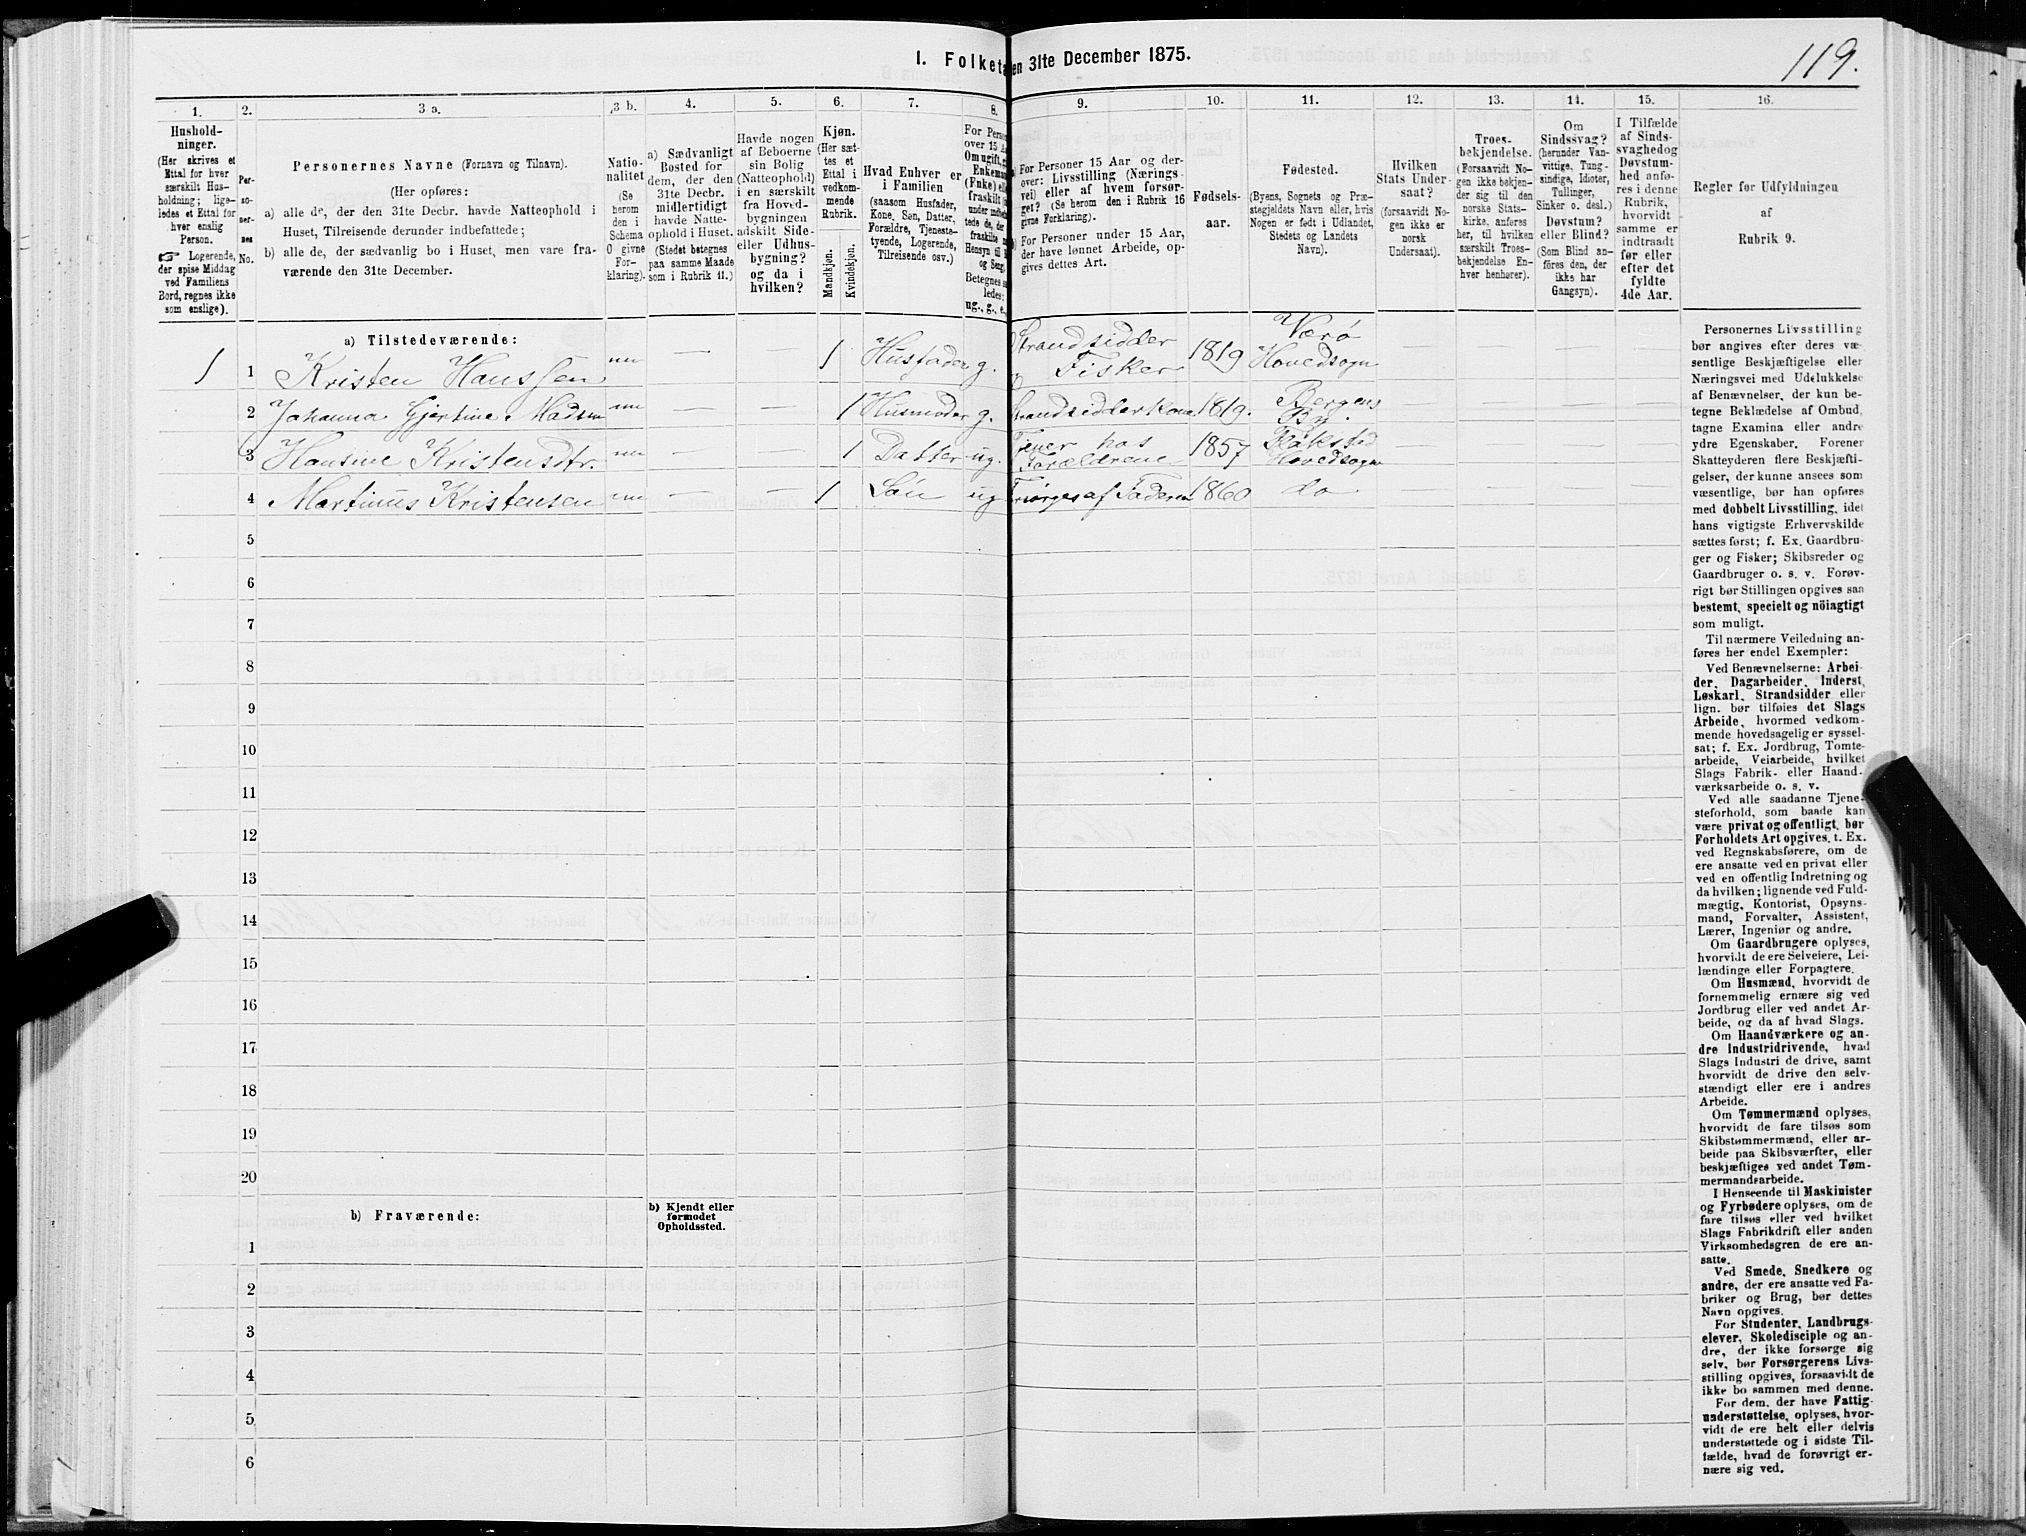 119.
1. Folketæ en 31te December 1875.
1. 2. 3 a. 3 b. 4. 5. 6. 7. 8. 9. 10. 11. 12. 13. 14. 15. 16.
Hushold-
ninger.
(Her skrives et
Ettal for hver
særskilt Hus-
holdning; lige-
ledes et Ettal for
hver enslig
Person.
☞ Logerende,
der spise Middag
ved Familiens
Bord, regnes ikke
som enslige).
Per-
so-
ner-
nes
No.
Personernes Navne (Fornavn og Tilnavn).
(Her opføres:
a) alle de, der den 31te Decbr. havde Natteophold i
Huset, Tilreisende derunder indbefattede;
b) alle de, der sædvanlig bo i Huset, men vare fra-
værende den 31te December.
Natio-
nalitet
(Se
herom
den i
Schema
O givne
For-
klaring).
a) Sædvanligt
Bosted for
dem, der den
31te Decbr.
midlertidigt
havde Natte-
ophold i Huset.
(Stedet betegnes
paa samme Maade
som i Rubrik 11.)
Havde nogen
af Beboerne
sin Bolig
(Natteophold)
i en særskilt
fra Hoved-
bygningen
adskilt Side-
eller Udhus-
bygning?
og da i
hvilken?
Kjøn.
(Her sæt-
tes et
Ettal i
vedkom-
mende
Rubrik.
Mandkjøn.
Kvindekjøn.
Hvad Enhver er
i Familien
(saasom Husfader,
Kone, Søn, Datter,
Forældre, Tjeneste-
tyende, Logerende,
Tilreisende osv.)
For Perso
over 15 A
Om ugift, g
Enkema
(Enke) ell
fraskilt
under indb
tede de, der
fraskilte
Hensyn til
og Seng
Betegnes s
ledes:
ug., g., e.,
For Personer 15 Aar og der-
over: Livsstilling (Nærings-
vei) eller af hvem forsør-
get? (Se herom den i Rubrik 16
givne Forklaring).
For Personer under 15 Aar,
der have lønnet Arbeide, op-
gives dettes Art.
Fødsels-
aar.
Fødested.
(Byens, Sognets og Præ-
stegjeldets Navn eller, hvis
Nogen er født i Udlandet,
Stedets og Landets
Navn).
Hvilken
Stats Under-
saat?
(forsaavidt No-
gen ikke er
norsk
Undersaat).
Troes-
bekjendelse.
(Forsaavidt No-
gen ikke bekjen-
der sig til den
norske Stats-
kirke, anføres
her, til hvilken
særskilt Troes-
bekjendelse En-
hver henhører).
Om
Sindssvag?
(herunder Van-
vittige, Tung-
sindige, Idioter,
Tullinger,
Sinker o. desl.)
Døvstum?
eller Blind?
(Som Blind an-
føres den, der
ikke har
Gangsyn).
I Tilfælde
af Sinds-
svaghed og
Døvstum-
hed anfø-
res i denne
Rubrik,
hvorvidt
samme er
indtraadt
før eller
efter det
fyldte
4de Aar.
Regler for Udfyldningen
af
Rubrik 9.
a) Tilstedeværende:
1 1 Kristen Hanssen nn — — 1 Husfader g. Strandsidder Fisker 1819 Værø Hovedsogn — — — —
2 Johanna Gjertine Madsen nn — — 1 Husmoder g. Strandsidderkone 1819. Bergens By. — — — —
3 Hansine Kristensdtr. nn — — 1 Datter ug. Tjener hos Forældrene 1857 Flakstad Hovedsogn — — — —
4 Martinus Kristensen nn — — 1 Søn ug Forsørges af Faderen 1860 do — — — —
5
6
7
8
9
10
11
12
13
14
15
16
17
18
19
20
b) Fraværende:
b) Kjendt eller
formodet
Opholdssted.
1
2
3
4
5
6
Personernes Livsstilling
bør angives efter deres væ-
sentlige Beskjæftigelse eller
Næringsvei med Udelukkelse
af Benævnelser, der kun be-
tegne Beklædelse af Ombud,
tagne Examina eller andre
ydre Egenskaber. Forener
Skatteyderen flere Beskjæfti-
gelser, der kunne ansees som
væsentlige, bør han opføres
med dobbelt Livsstilling, idet
hans vigtigste Erhvervskilde
sættes først; f. Ex. Gaardbru-
ger og Fisker; Skibsreder og
Gaardbruger o. s. v. Forøv-
rigt bør Stillingen opgives saa
bestemt, specielt og nöiagtigt
som muligt.
Til nærmere Veiledning an-
føres her endel Exempler:
Ved Benævnelserne: Arbei-
der, Dagarbeider, Inderst,
Løskarl, Strandsidder eller
lign. bør tilføies det Slags
Arbeide, hvormed vedkom-
mende hovedsagelig er syssel-
sat; f. Ex. Jordbrug, Tomte-
arbeide, Veiarbeide, hvilket
Slags Fabrik- eller Haand-
værksarbeide o. s. v.
Ved alle saadanne Tjene-
steforhold, som baade kan
være privat og offentligt, bør
Forholdets Art opgives, t. Ex.
ved Regnskabsførere, om de
ere ansatte ved en privat eller
ved en offentlig Indretning og
da hvilken; lignende ved Fuld-
mægtig, Kontorist, Opsyns-
mand, Forvalter, Assistent,
Lærer, Ingeniør og andre.
Om Gaardbrugere oplyses,
hvorvidt de ere Selveiere, Lei-
lændinge eller Forpagtere.
Om Husmænd, hvorvidt de
fornemmelig ernære sig ved
Jordbrug eller ved andet Ar-
beide, og da af hvad Slags.
Om Haandværkere og an-
dre Industridrivende, hvad
Slags Industri de drive, samt
hvorvidt de drive den selv-
stændigt eller ere i andres
Arbeide.
Om Tømmermænd oplyses,
hvorvidt de fare tilsøs som
Skibstømmermænd, eller ar-
beide paa Skibsværfter, eller
beskjæftiges ved andet Tøm-
mermandsarbeide.
I Henseende til Maskinister
og Fyrbødere oplyses, om de
fare tilsøs eller ved hvilket
Slags Fabrikdrift eller anden
Virksomhedsgren de ere an-
satte.
Ved Smede, Snedkere og
andre, der ere ansatte ved Fa-
briker og Brug, bør dettes
Navn opgives.
For Studenter, Landbrugs-
elever, Skoledisciple og an-
dre, der ikke forsørge sig
selv, bør Forsørgerens Livs-
stilling opgives, forsaavidt de
ikke bo sammen med denne.
For dem, der have Fattig-
understøttelse, oplyses, hvor-
vidt de ere helt eller delvis
understøttede og i sidste Til-
fælde, hvad de forøvrigt er-
nære sig ved.